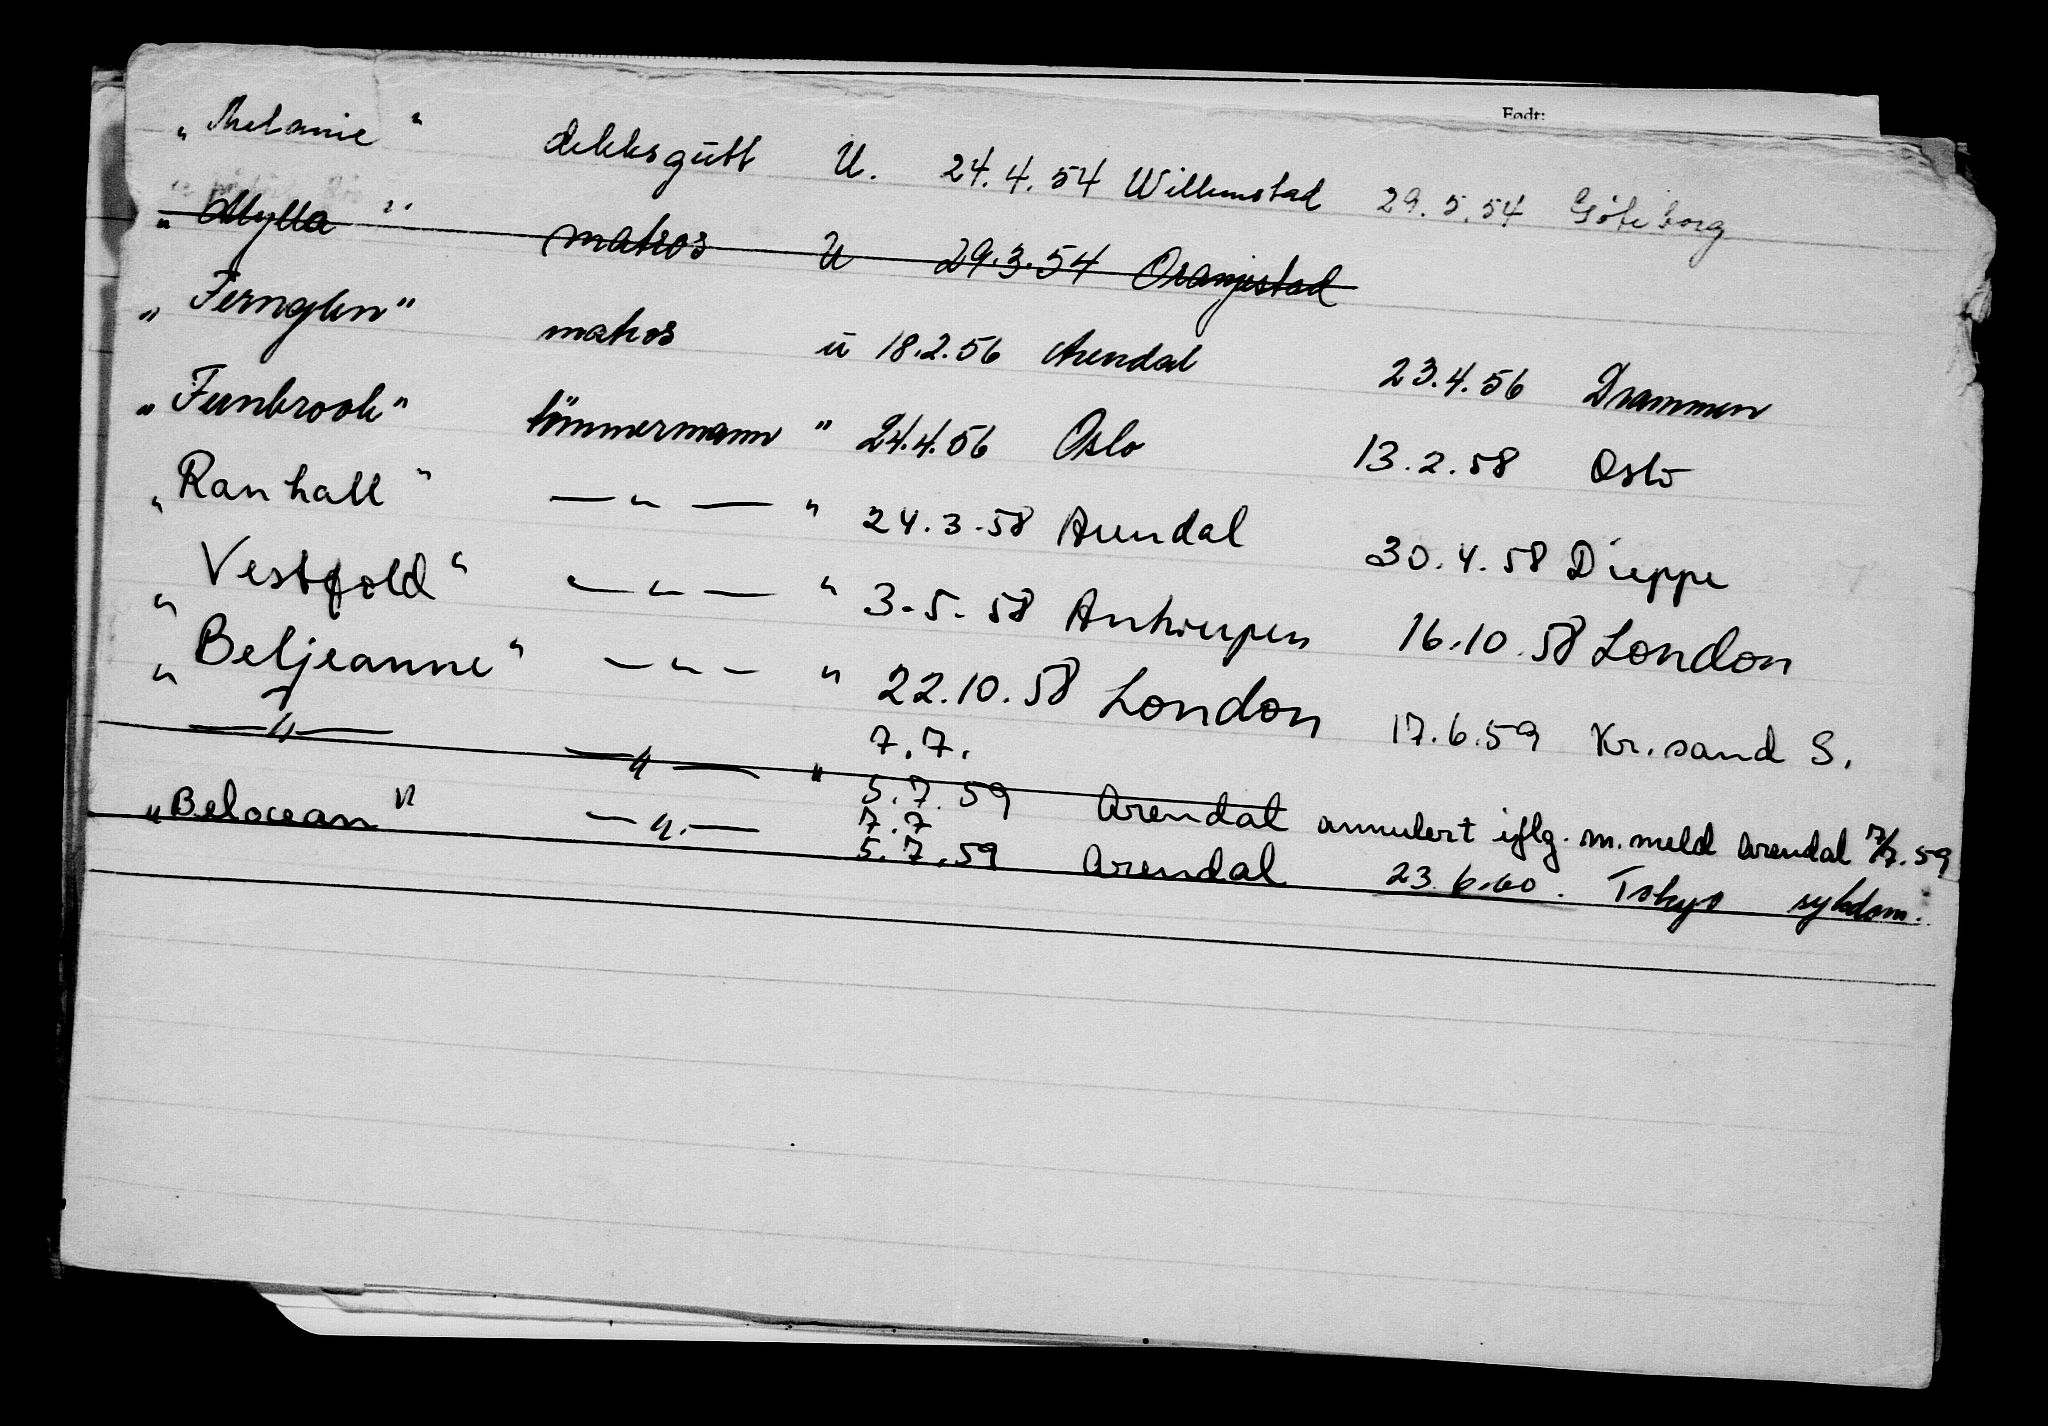 Født:
„Melanie" dekksgutt U. 24.4.54 Willemstad 29.5.54 Göteborg
„Mylla" matros U 29.3.54 Oranjestad
„Fernglen" matros u 18.2.56 Arendal 23.4.56 Drammen
„Fernbrook" tömmermann " 24.4.56 Oslo 13.2.58 Oslo
„Ranhall" — " — " 24.3.58 Arendal 30.4.58 Dieppe
„Vestfold" — " — " 3.5.58 Antwerpen 16.10.58 London
„Beljeanne" — " — " 22.10.58 London 17.6.59 Kr.sand S.
7.7.
— " — — " — " 5.7.59 Arendal annulert iflg. m. meld Arendal 7/7.59
7.7
„Belocean" — " — 5.7.59 Arendal 23.6.60. Tokyo sykdom.